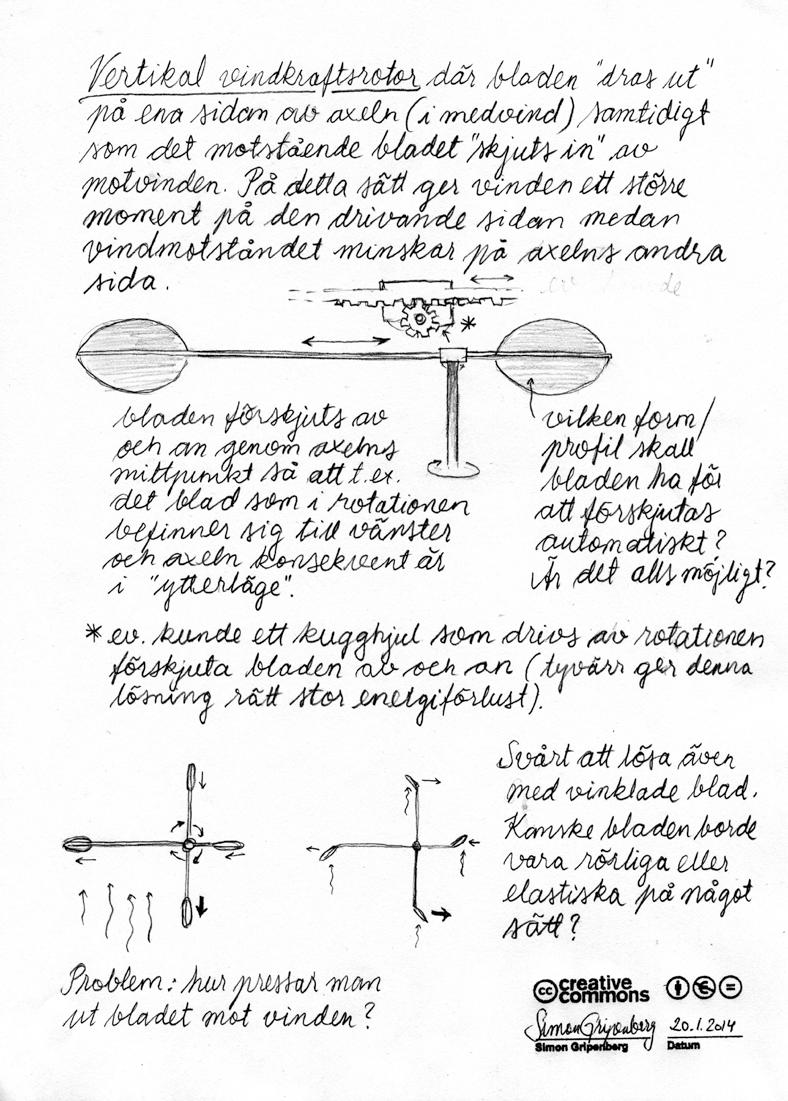 Vertikal vindkraftsrotor där bladen "dras ut"
på ena sidan av axeln (i medvind) samtidigt
som det motstående bladet "skjuts in" av
motvinden. På detta sätt ger vinden ett större
moment på den drivande sidan medan
vindmotståndet minskar på axelns andra
sida.
*
bladen förskjuts av
och an genom axelns
mittpunkt så att t.ex.
det blad som i rotationen
befinner sig till vänster
om axeln konsekvent är
i "ytterläge".
vilken form/
profil skall
bladen ha för
att förskjutas
automatiskt?
Är det alls möjligt?
* ev. kunde ett kugghjul som drivs av rotationen
förskjuta bladen av och an (tyvärr ger denna
lösning rätt stor energiförlust).
Svårt att lösa även
med vinklade blad.
Kanske bladen borde
vara rörliga eller
elastiska på något
sätt?
Problem: hur pressar man
ut bladet mot vinden?
cc creative
commons
Simon Gripenberg 20.1.2014
Simon Gripenberg Datum